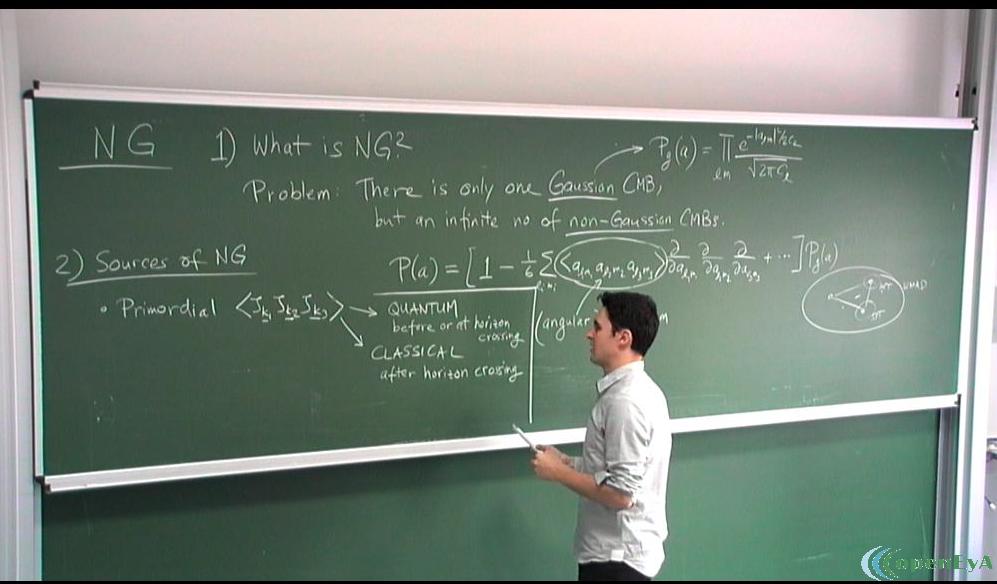 NG 1) What is NG?
P_g(a) = ∏_{lm} e^{-|a_{lm}|²/2C_l} / √(2πC_l)
Problem: There is only one Gaussian CMB,
but an infinite no of non-Gaussian CMBs.
2) Sources of NG
P(a) = [1 - 1/6 Σ_{l_i m_i} ⟨a_{l_1m_1} a_{l_2m_2} a_{l_3m_3}⟩ ∂/∂a_{l_1m_1} ∂/∂a_{l_2m_2} ∂/∂a_{l_3m_3} + ...] P_g(a)
• Primordial ⟨ζ_{k_1} ζ_{k_2} ζ_{k_3}⟩
QUANTUM
before or at horizon
crossing
CLASSICAL
after horizon crossing
(angular
WMAP
openEyA